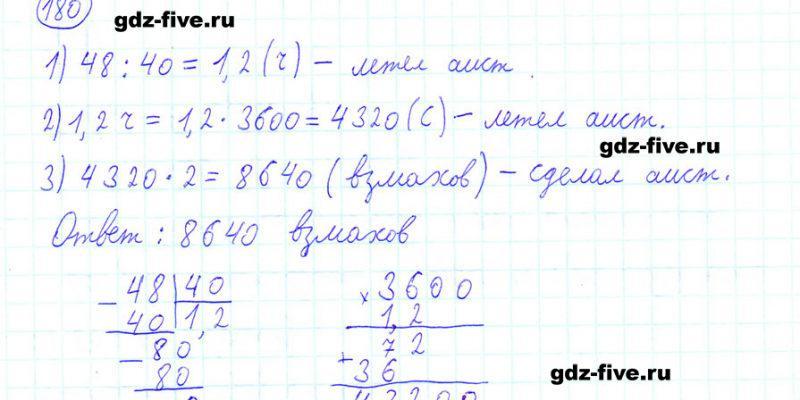 180
gdz-five.ru
gdz-five.ru
1) 48 : 40 = 1,2 (ч) – летел аист.
2) 1,2 ч = 1,2 · 3600 = 4320 (с) – летел аист.
gdz-five.ru
3) 4320 · 2 = 8640 (взмахов) – сделал аист.
Ответ : 8640 взмахов
– 48 | 40
40 | 1,2
– 80
80
0
× 3600
1,2
+ 72
36
43200
gdz-five.ru